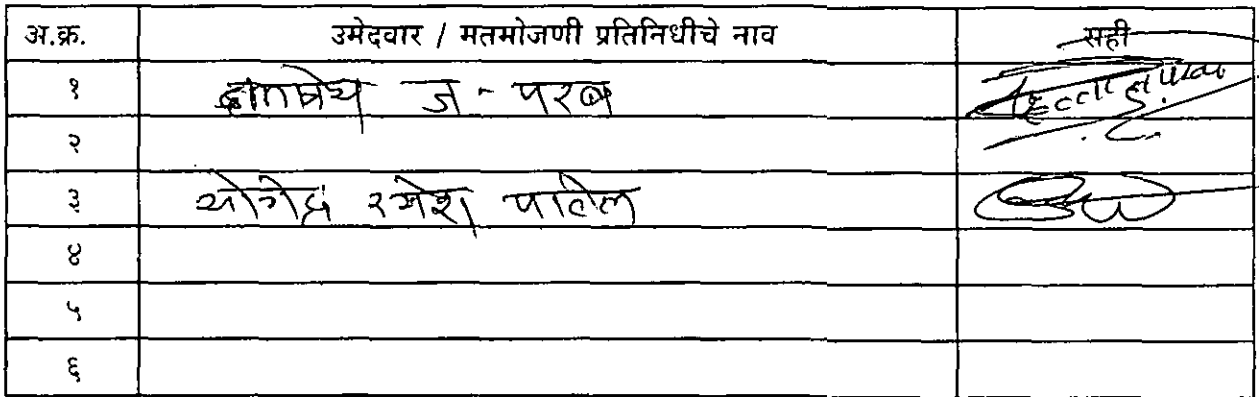 अ.क्र. उमेदवार / मतमोजणी प्रतिनिधीचे नाव सही
१ ज - परब
२
३ योगेंद्र रमेश पाटील
४
५
६